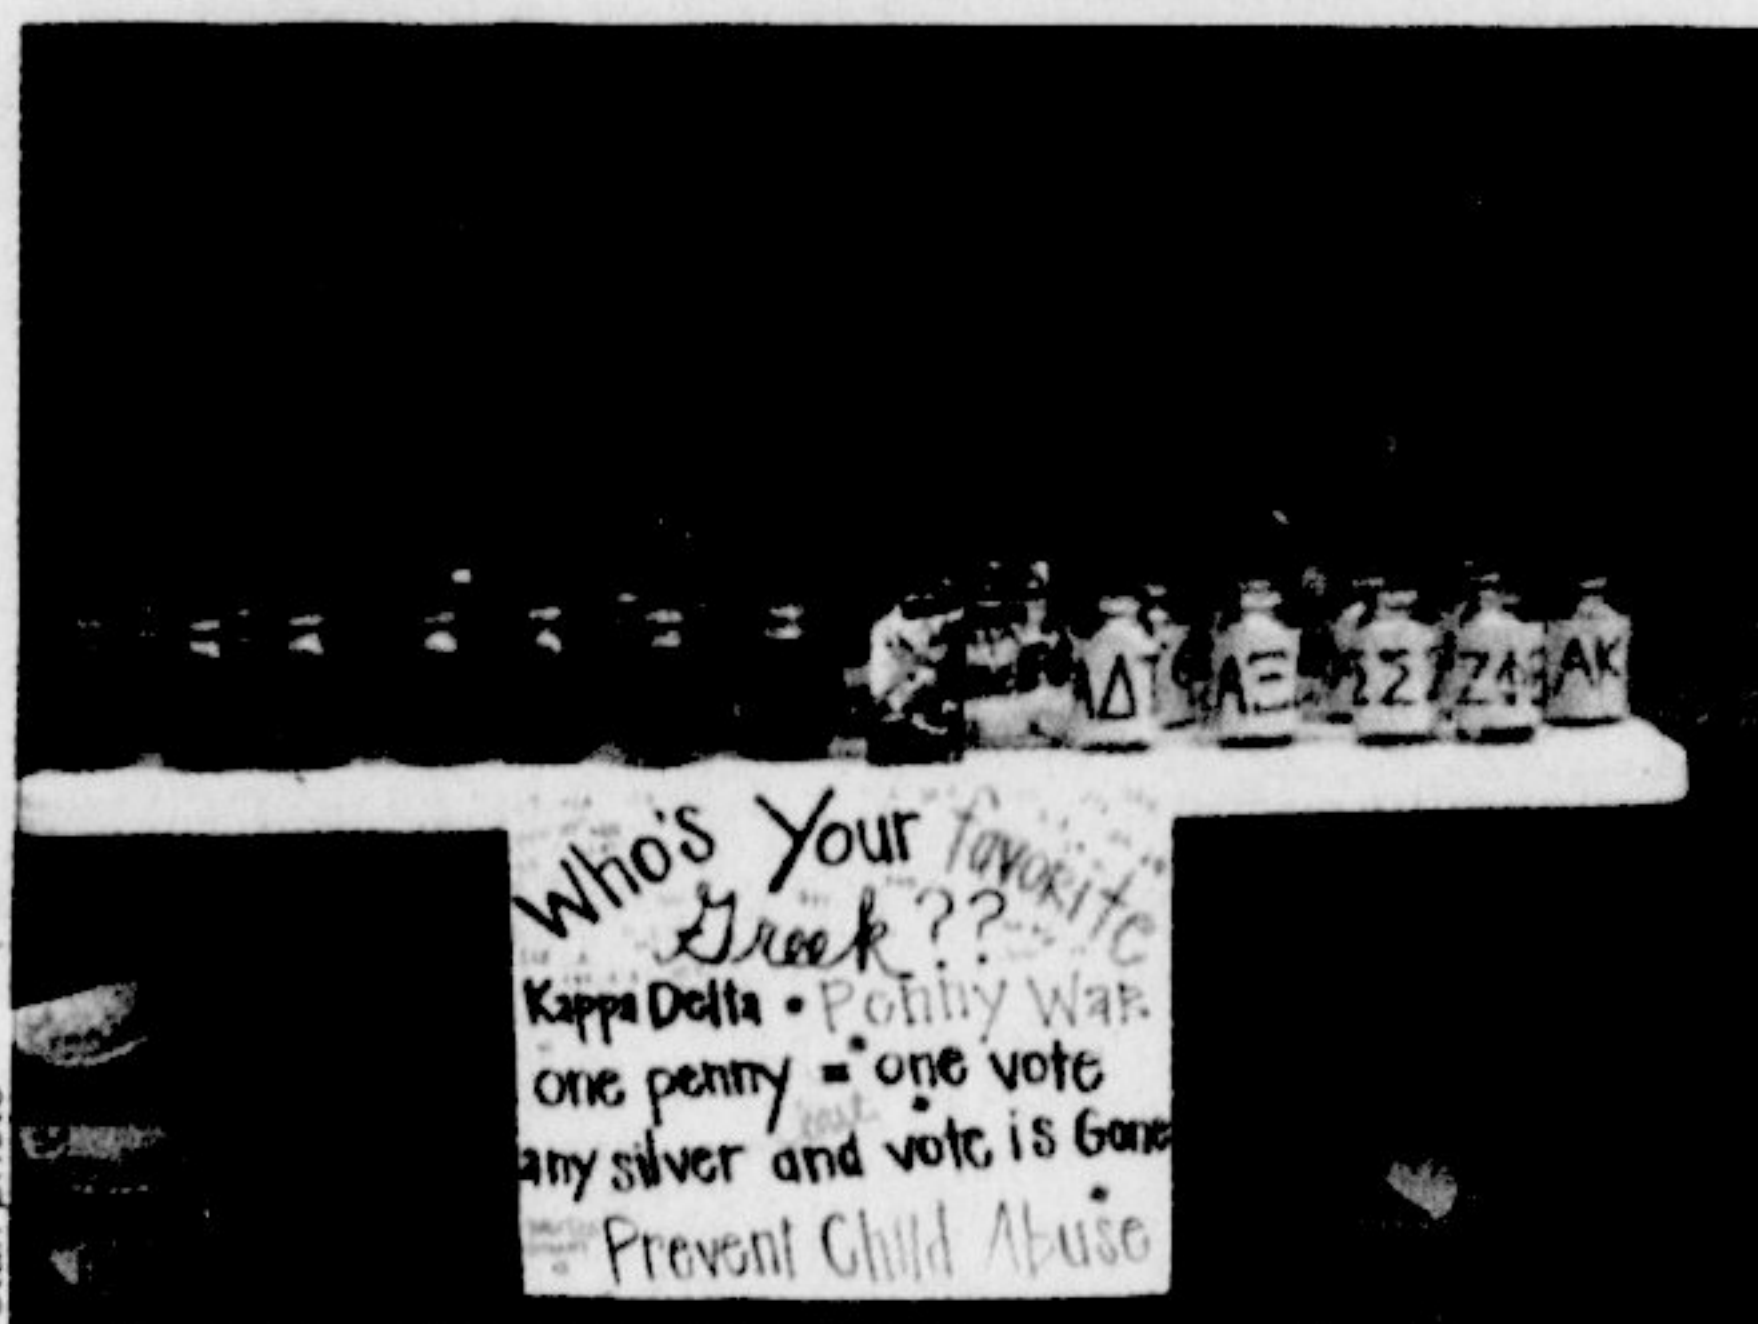 ΑΞ
ΣΣ
ΑΚ
Who's Your favorite
Greek??
Kappa Delta • Penny War
one penny = one vote
any silver and vote is Gone
Prevent Child Abuse